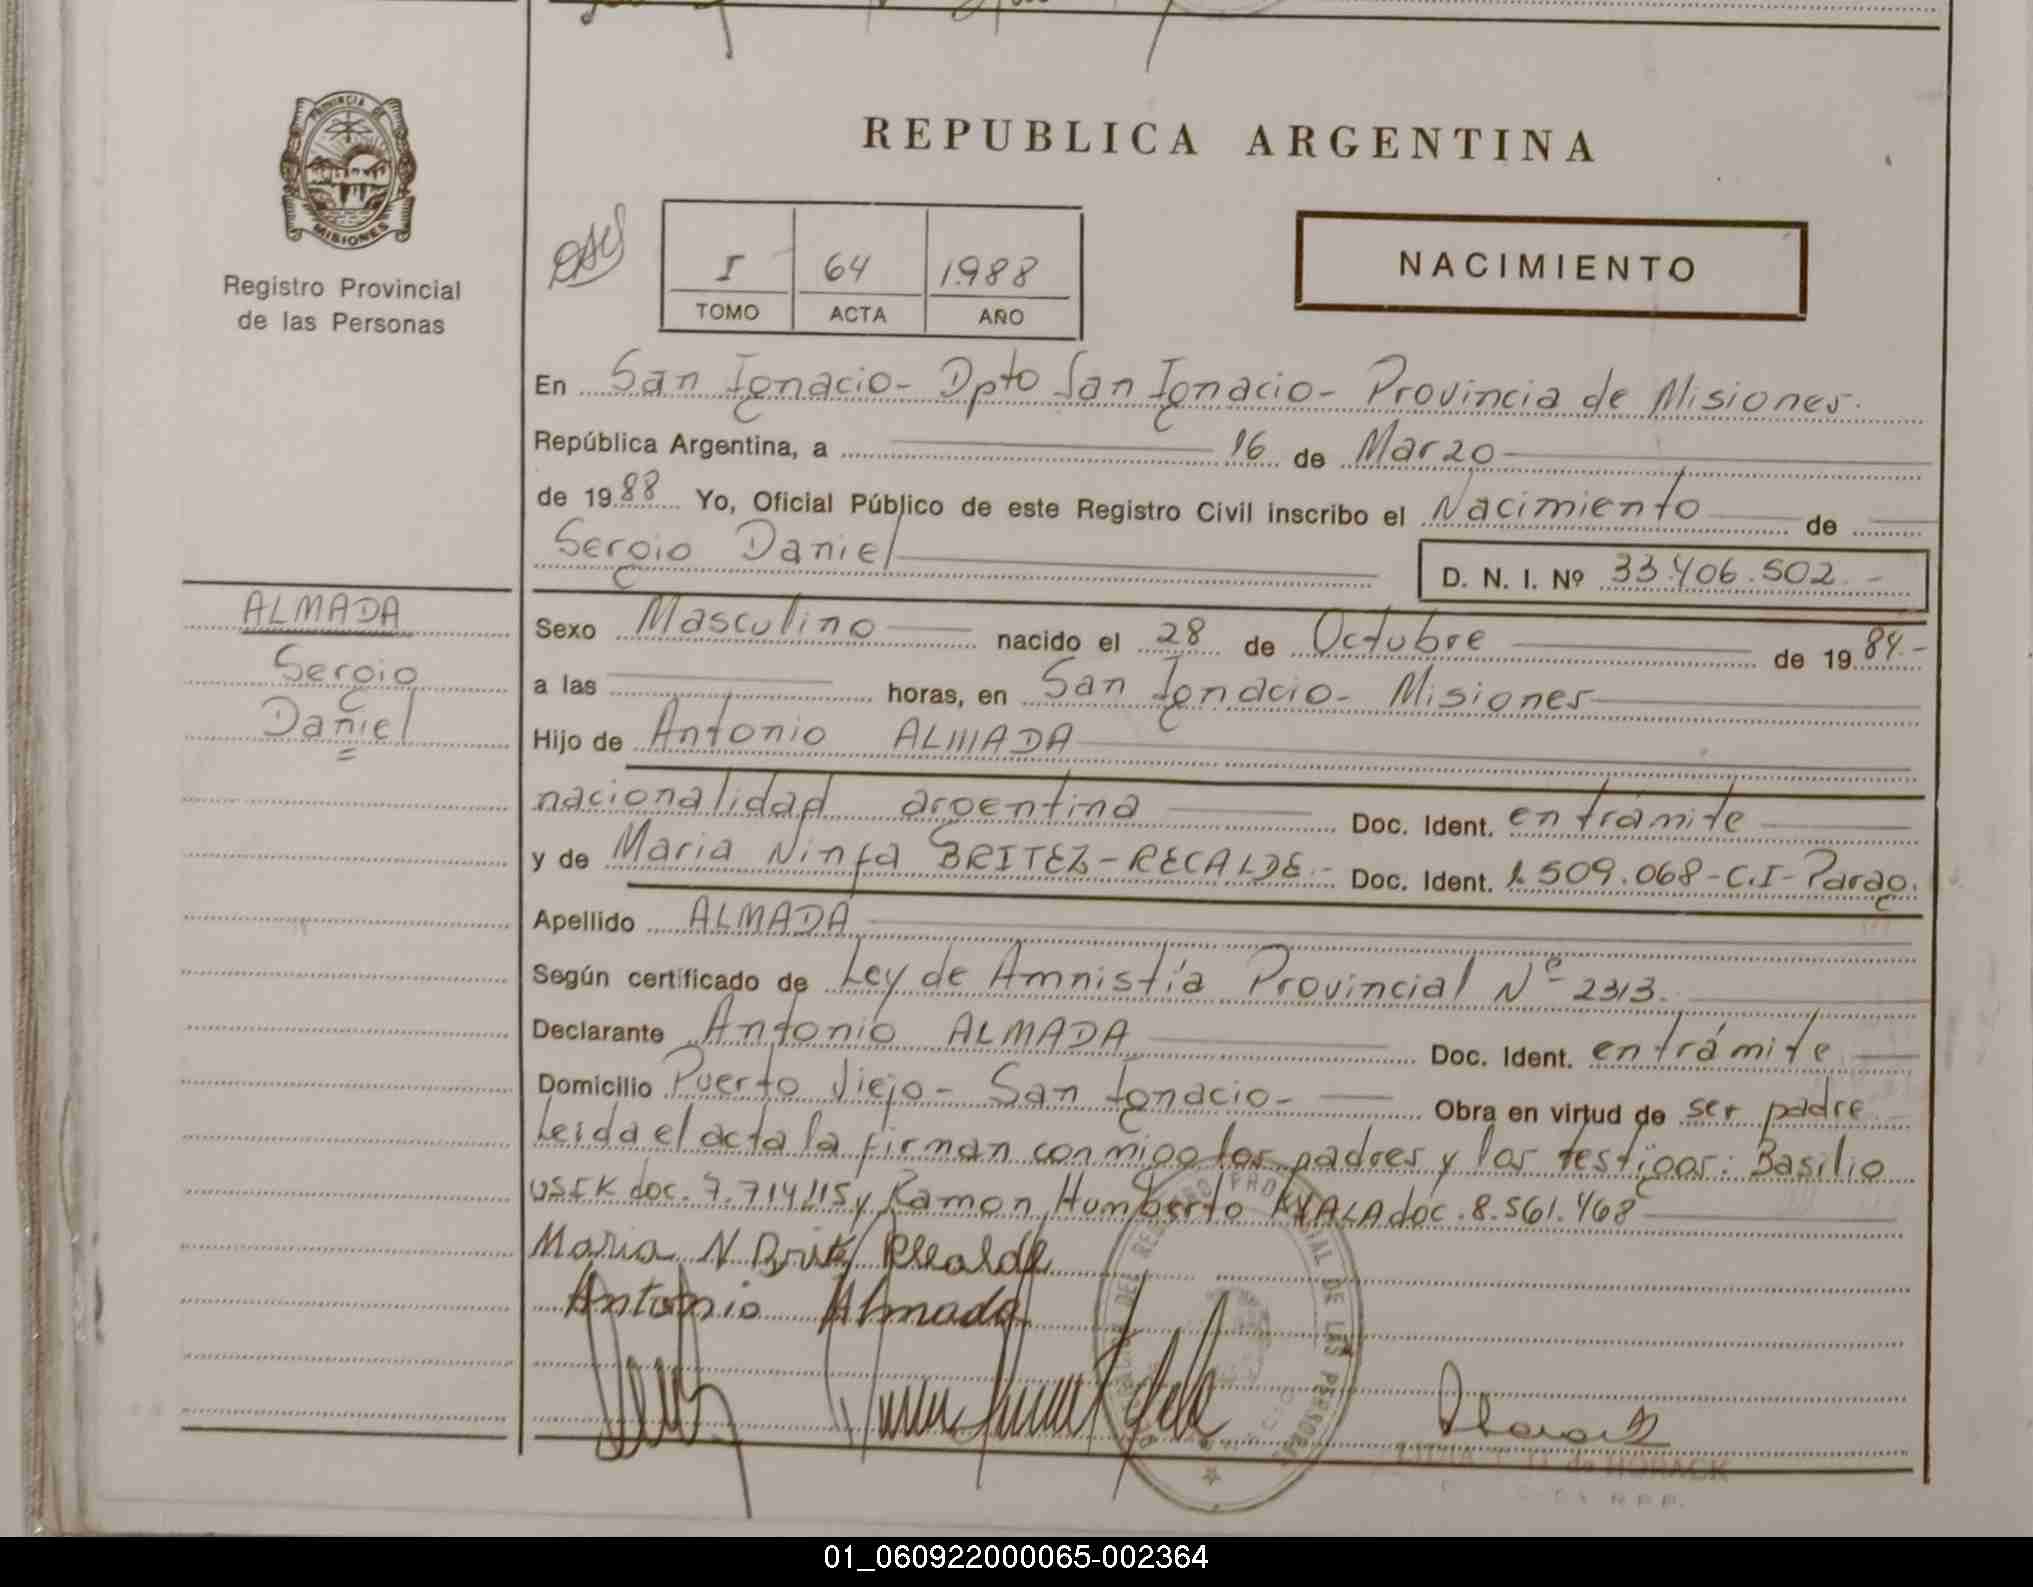 PROVINCIA DE
MISIONES
Registro Provincial
de las Personas
REPUBLICA ARGENTINA
I 64 1988
TOMO ACTA AÑO
NACIMIENTO
En San Ignacio - Dpto San Ignacio - Provincia de Misiones.
República Argentina, a 16 de Marzo
de 1988 Yo, Oficial Público de este Registro Civil inscribo el Nacimiento de
Sergio Daniel
D. N. I. Nº 33.406.502.-
ALMADA
Sergio
Daniel
Sexo Masculino nacido el 28 de Octubre de 1984.-
a las horas, en San Ignacio - Misiones
Hijo de Antonio ALMADA
nacionalidad argentina Doc. Ident. en trámite
y de Maria Ninfa BRITEZ-RECALDE.- Doc. Ident. 1.509.068-C.I-Parag.
Apellido ALMADA
Según certificado de Ley de Amnistía Provincial Nº 2313.
Declarante Antonio ALMADA Doc. Ident. en trámite
Domicilio Puerto Viejo - San Ignacio - Obra en virtud de ser padre
Leida el acta la firman conmigo los padres y los testigos: Basilio
USIK doc. 7.714.115 y Ramon Humberto AYALA doc. 8.561.468
Maria N Britez Recalde
Antonio Almada
de HORACK
01_060922000065-002364